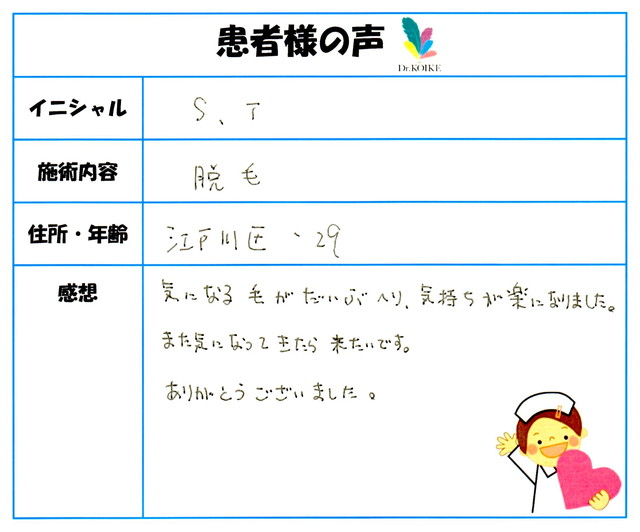 患者様の声
Dr.KOIKE
イニシャル
S、T
施術内容
脱毛
住所・年齢
江戸川区、29
感想
気になる毛がだいぶへり、気持ちが楽になりました。
また気になってきたら来たいです。
ありがとうございました。